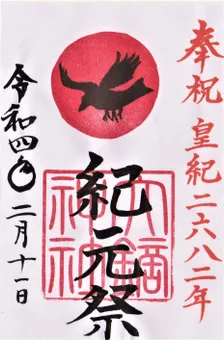 奉祝 皇紀二六八二年
紀元祭
令和四年 二月十一日